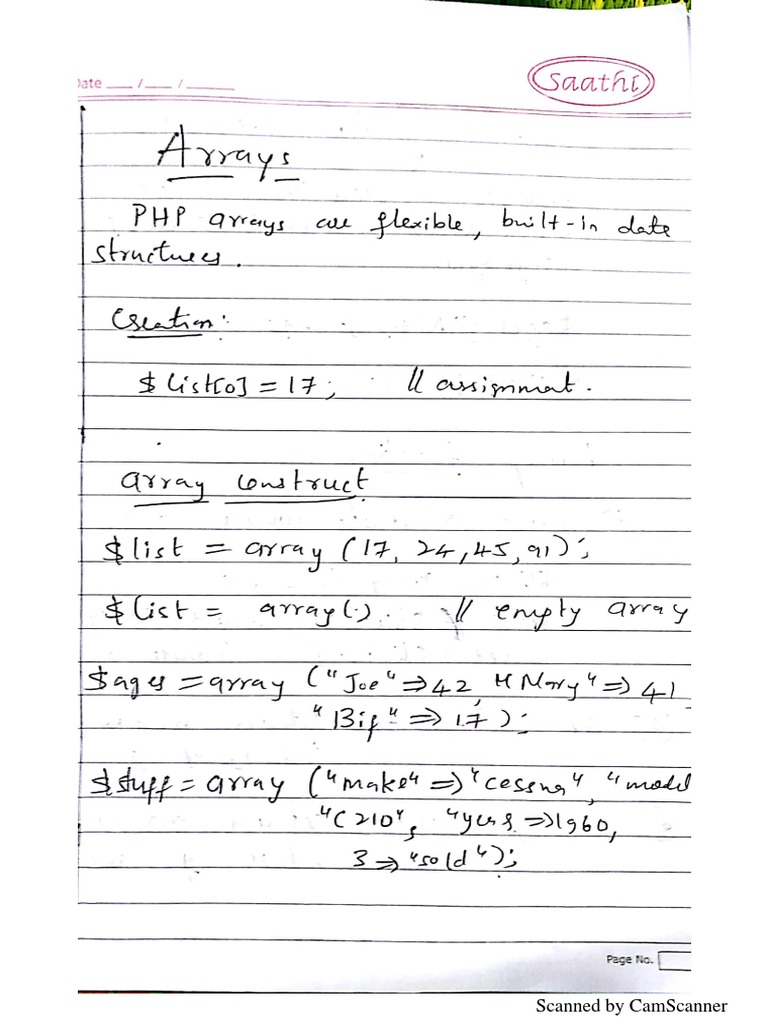 Date ___/___/______
Saathi
Arrays
PHP arrays are flexible, built-in date
structures.
Creation:
$ list[0] = 17; // assignment.
array construct
$ list = array (17, 24, 45, 91);
$ list = array(.) // empty array
$ ages = array ("Joe" => 42, "Mary" => 41
"Bif" => 17);
$ stuff = array ("make" => "cessna", "model
"C210", "year => 1960,
3 => "sold");
Page No.
Scanned by CamScanner